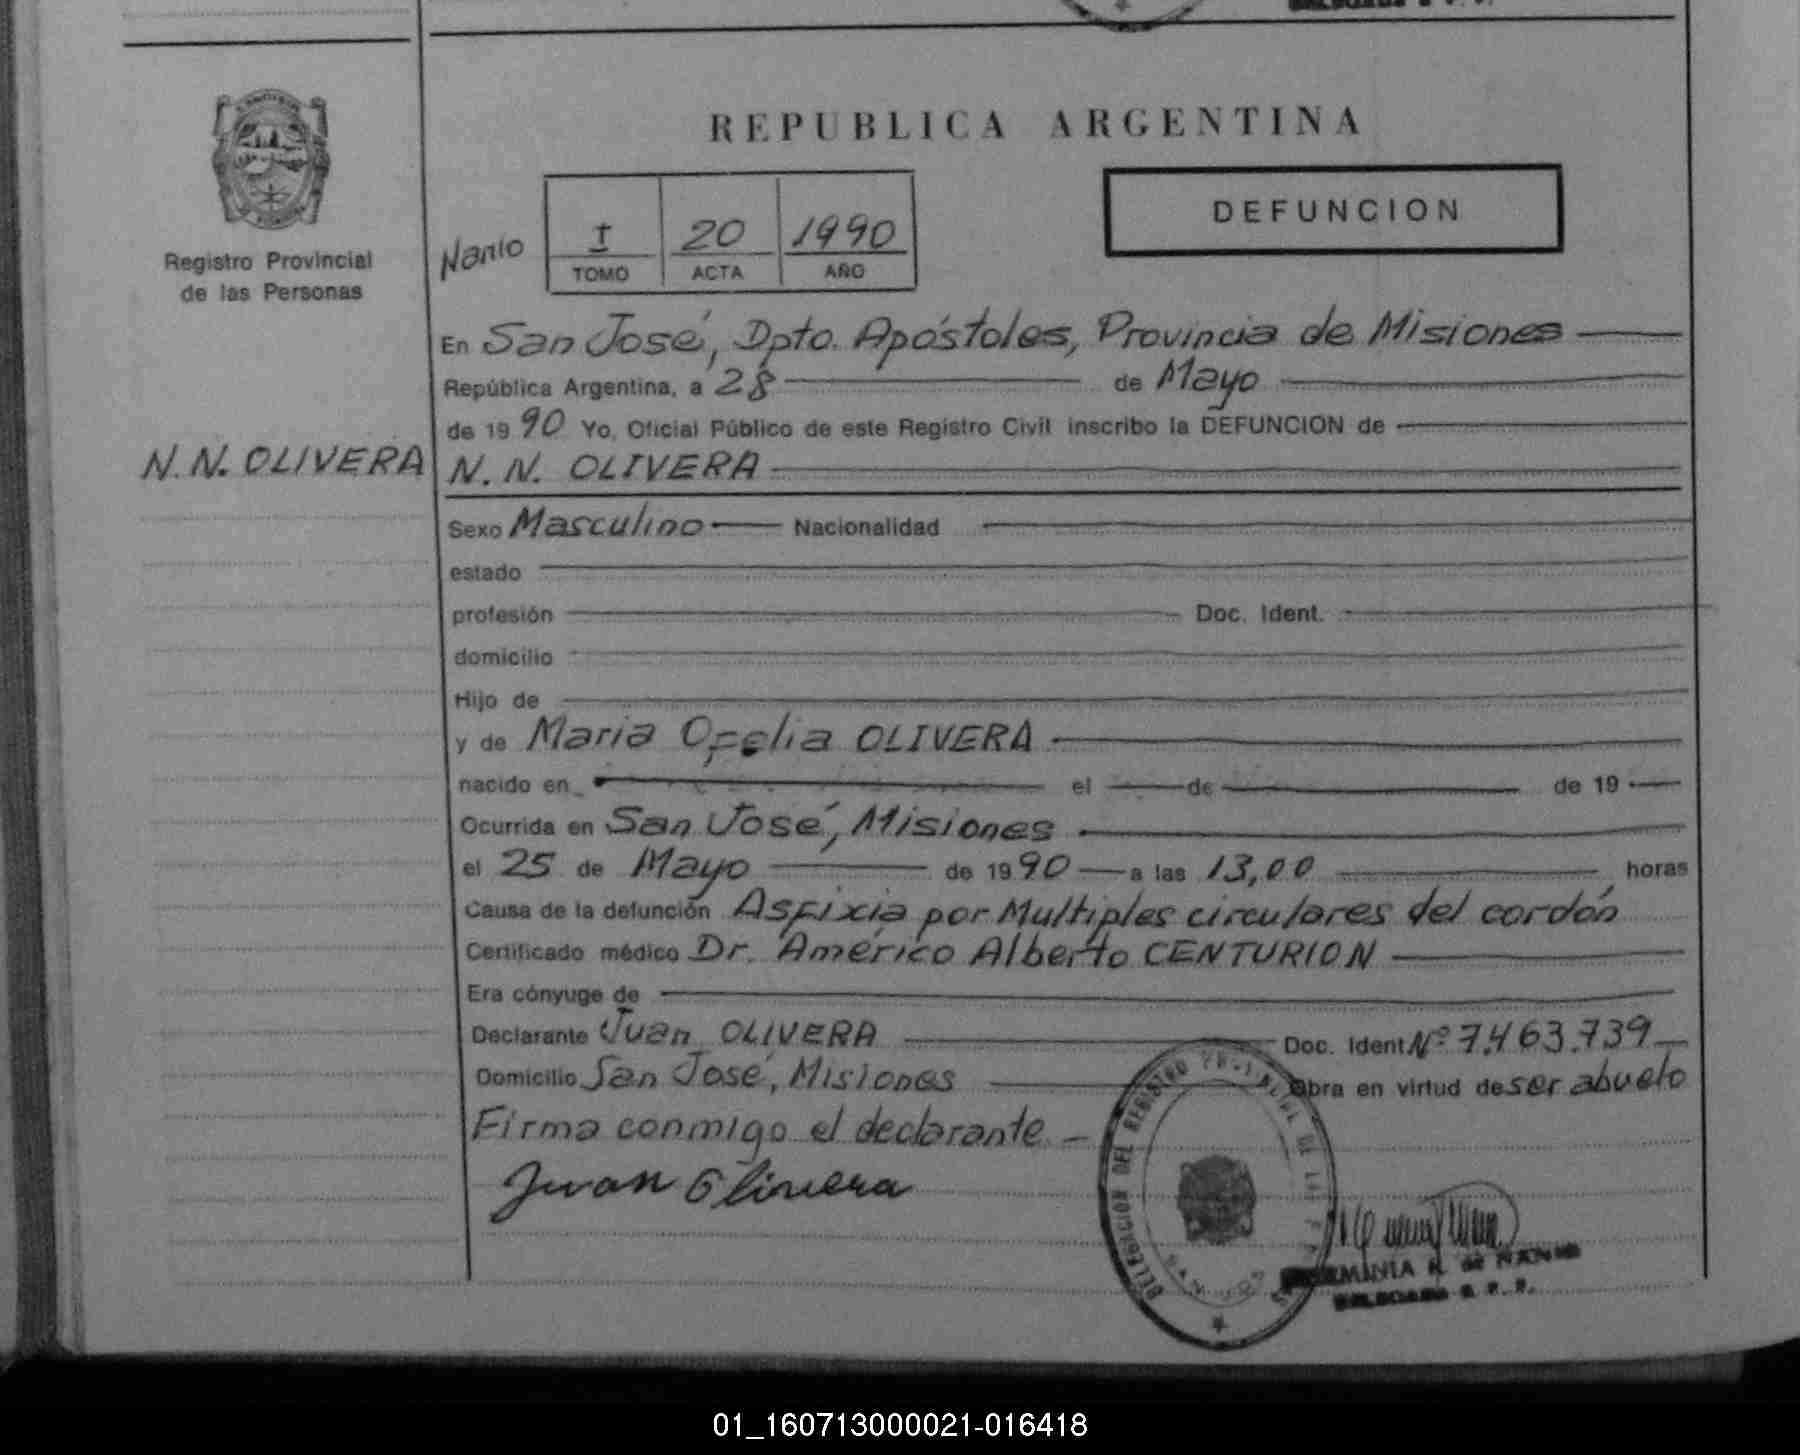 REPUBLICA ARGENTINA
DEFUNCION
Registro Provincial
de las Personas
Nanio
I 20 1990
TOMO ACTA AÑO
En San José, Dpto. Apóstoles, Provincia de Misiones
República Argentina, a 28 de Mayo
de 1990 Yo, Oficial Público de este Registro Civil inscribo la DEFUNCION de
N.N. OLIVERA
N. N. OLIVERA
Sexo Masculino Nacionalidad
estado
profesión Doc. Ident.
domicilio
Hijo de
y de Maria Ofelia OLIVERA
nacido en el de de 19
Ocurrida en San José, Misiones
el 25 de Mayo de 1990 a las 13,00 horas
Causa de la defunción Asfixia por Multiples circulares del cordón
Certificado médico Dr. Américo Alberto CENTURION
Era cónyuge de
Declarante Juan OLIVERA Doc. Ident Nº 7.463.739
Domicilio San José, Misiones Obra en virtud de ser abuelo
Firma conmigo el declarante
Juan Olivera
DELEGACION DEL REGISTRO DE
SAN JOSE
de NANIO
01_160713000021-016418